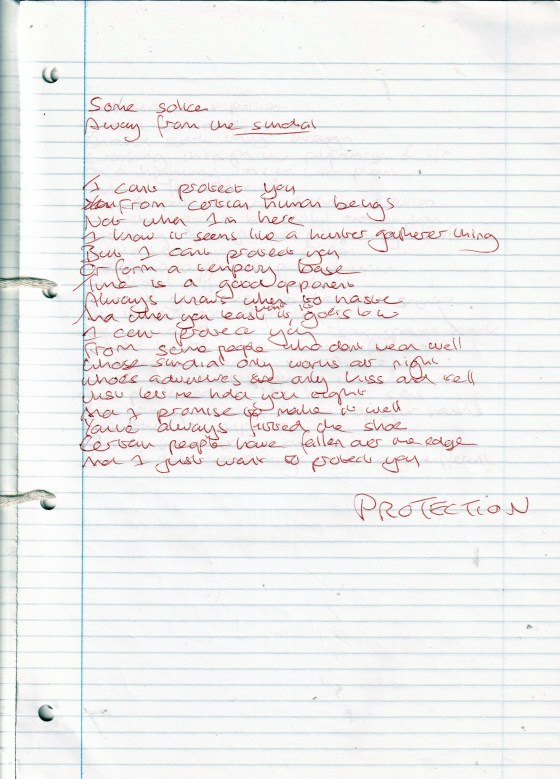 Some solice
Away from the sundial
I cant protect you
From certian human beings
Not when I'm here
I know it seems like a hunter gatherer thing
But I cant protect you
Or form a tempory base
Time is a good opponent
Always knows when to haste
And when you least want it, goes slow
I cant protect you
From some people who dont mean well
Whose sundial only works at night
Whoes adventures are only kiss and tell
Just let me hold you tight
And I promise to make it well
You've always fitted the shoe
Certian people have fallen over the edge
And I just want to protect you
PROTECTION